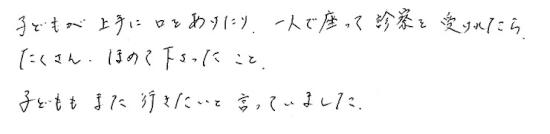 子どもが上手に口をあけたり、一人で座って診察を受けれたら、
たくさん、ほめて下さったこと、
子どももまた行きたいと言っていました。